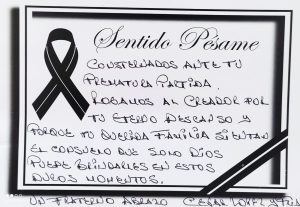 Sentido Pésame
CONSTERNADOS ANTE TU
PREMATURA PARTIDA.
ROGAMOS AL CREADOR POR
TU ETERNO DESCANSO Y
PORQUE TU QUERIDA FAMILIA SIENTAN
EL CONSUELO QUE SOLO DIOS
PUEDE BRINDARLES EN ESTOS
DUROS MOMENTOS.
UN FRATERNO ABRAZO CESAR LOPEZ Y